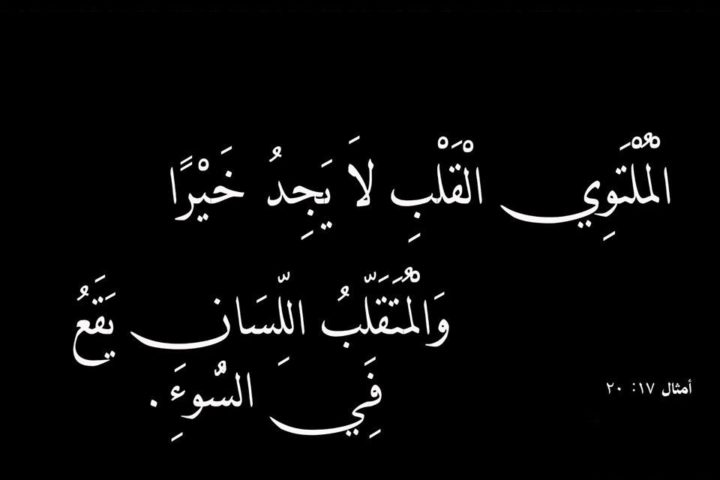 الْمُلْتَوِي الْقَلْبِ لاَ يَجِدُ خَيْرًا
وَالْمُتَقَلِّبُ اللِّسَانِ يَقَعُ
فِي السُّوءِ.
أمثال ١٧: ٢٠